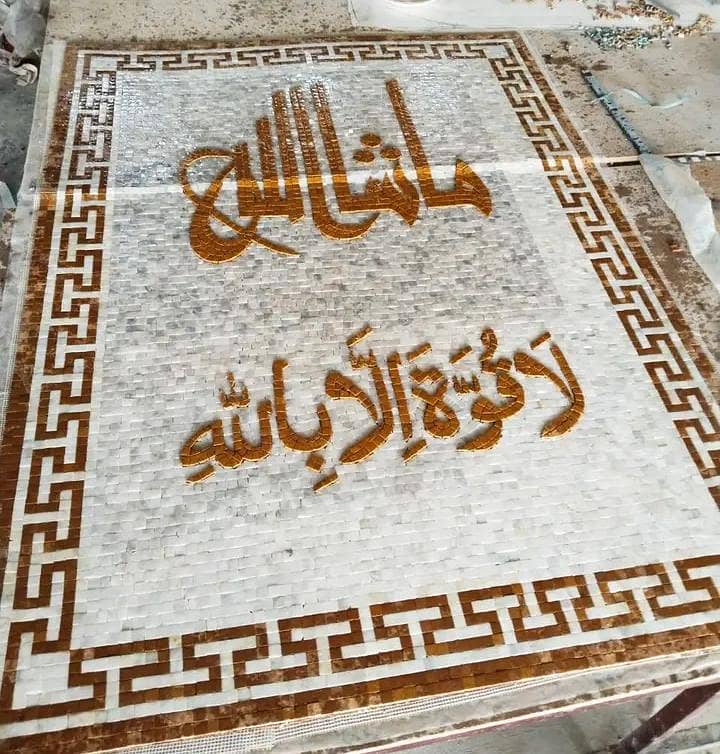 ماشاالله
لَا قُوَّةَ اِلَّا بِاللهِ